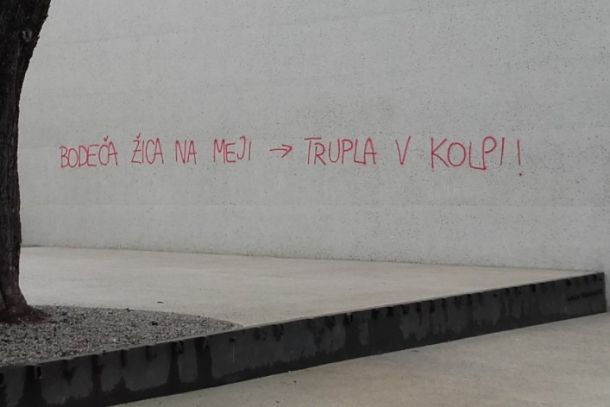 BODEČA ŽICA NA MEJI → TRUPLA V KOLPI!